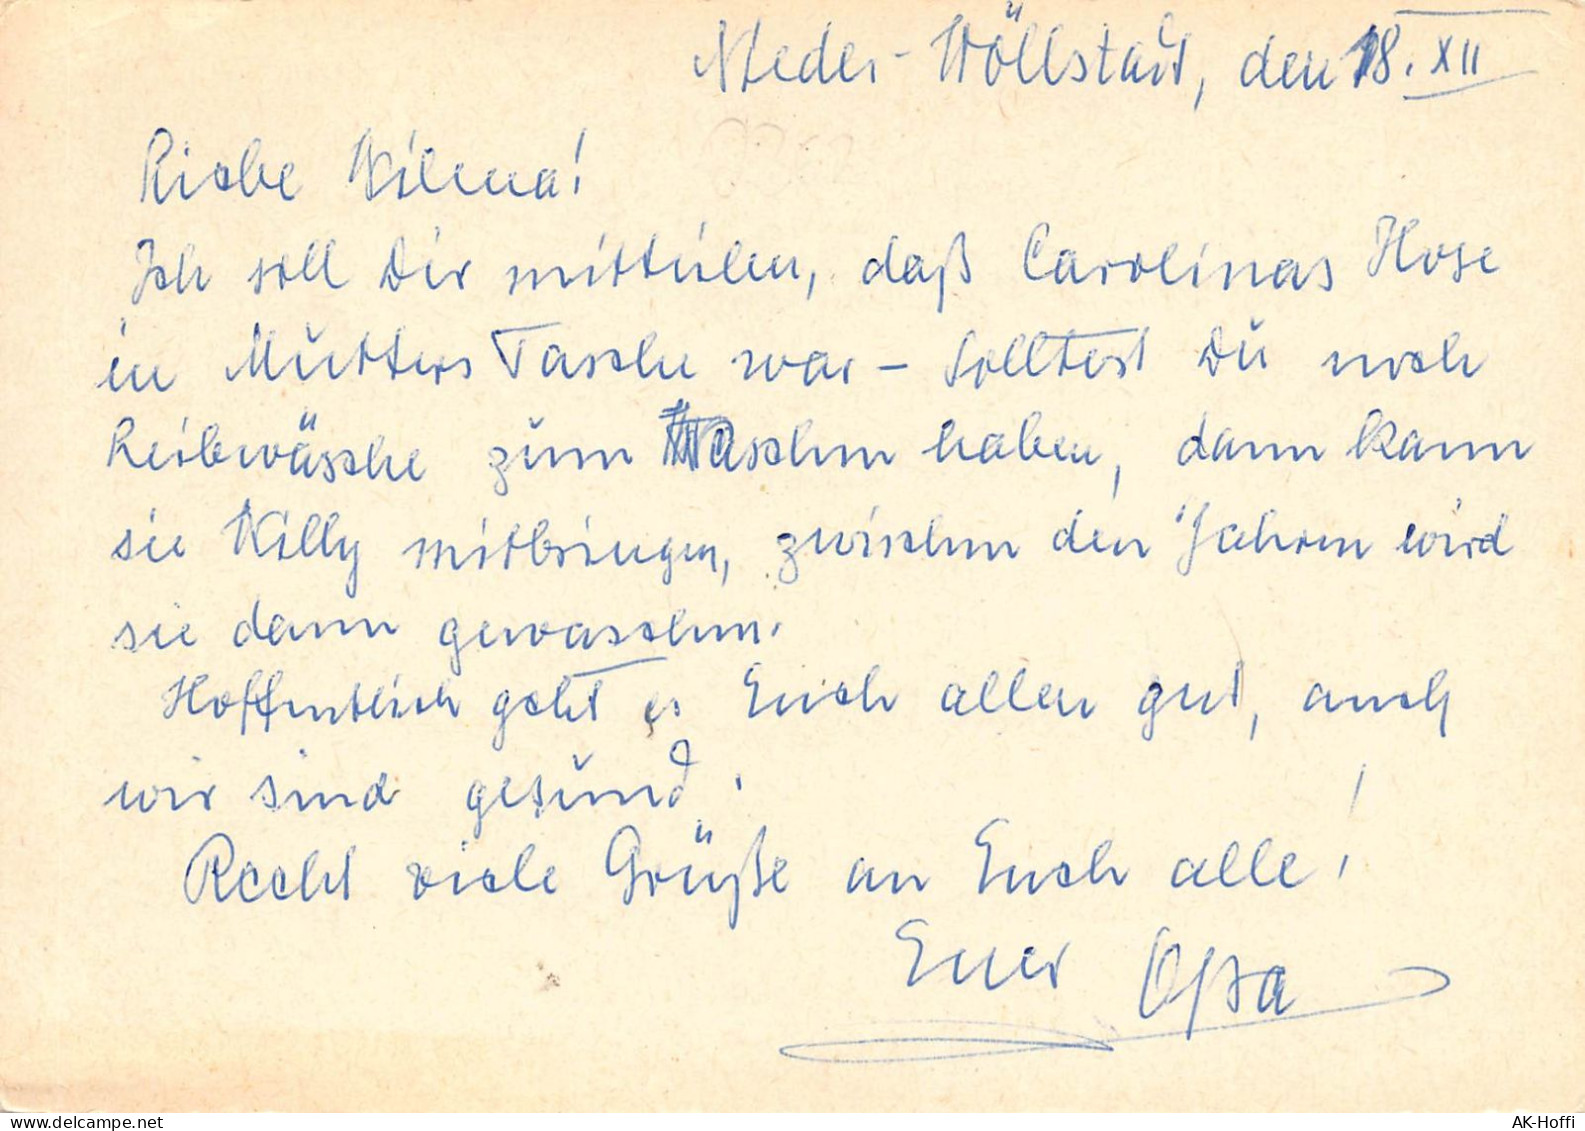 Nieder-Wöllstadt, den 18. XII
Liebe Wilma!
Ich soll Dir mitteilen, daß Carolinas Hose
in Mutters Tasche war - Solltest Du noch
Leibwäsche zum Waschen haben, dann kann
sie Willy mitbringen, zwischen den Jahren wird
sie dann gewaschen.
Hoffentlich geht es Euch allen gut, auch
wir sind gesund.
Recht viele Grüße an Euch alle!
Euer Opa
AK-Hoffi